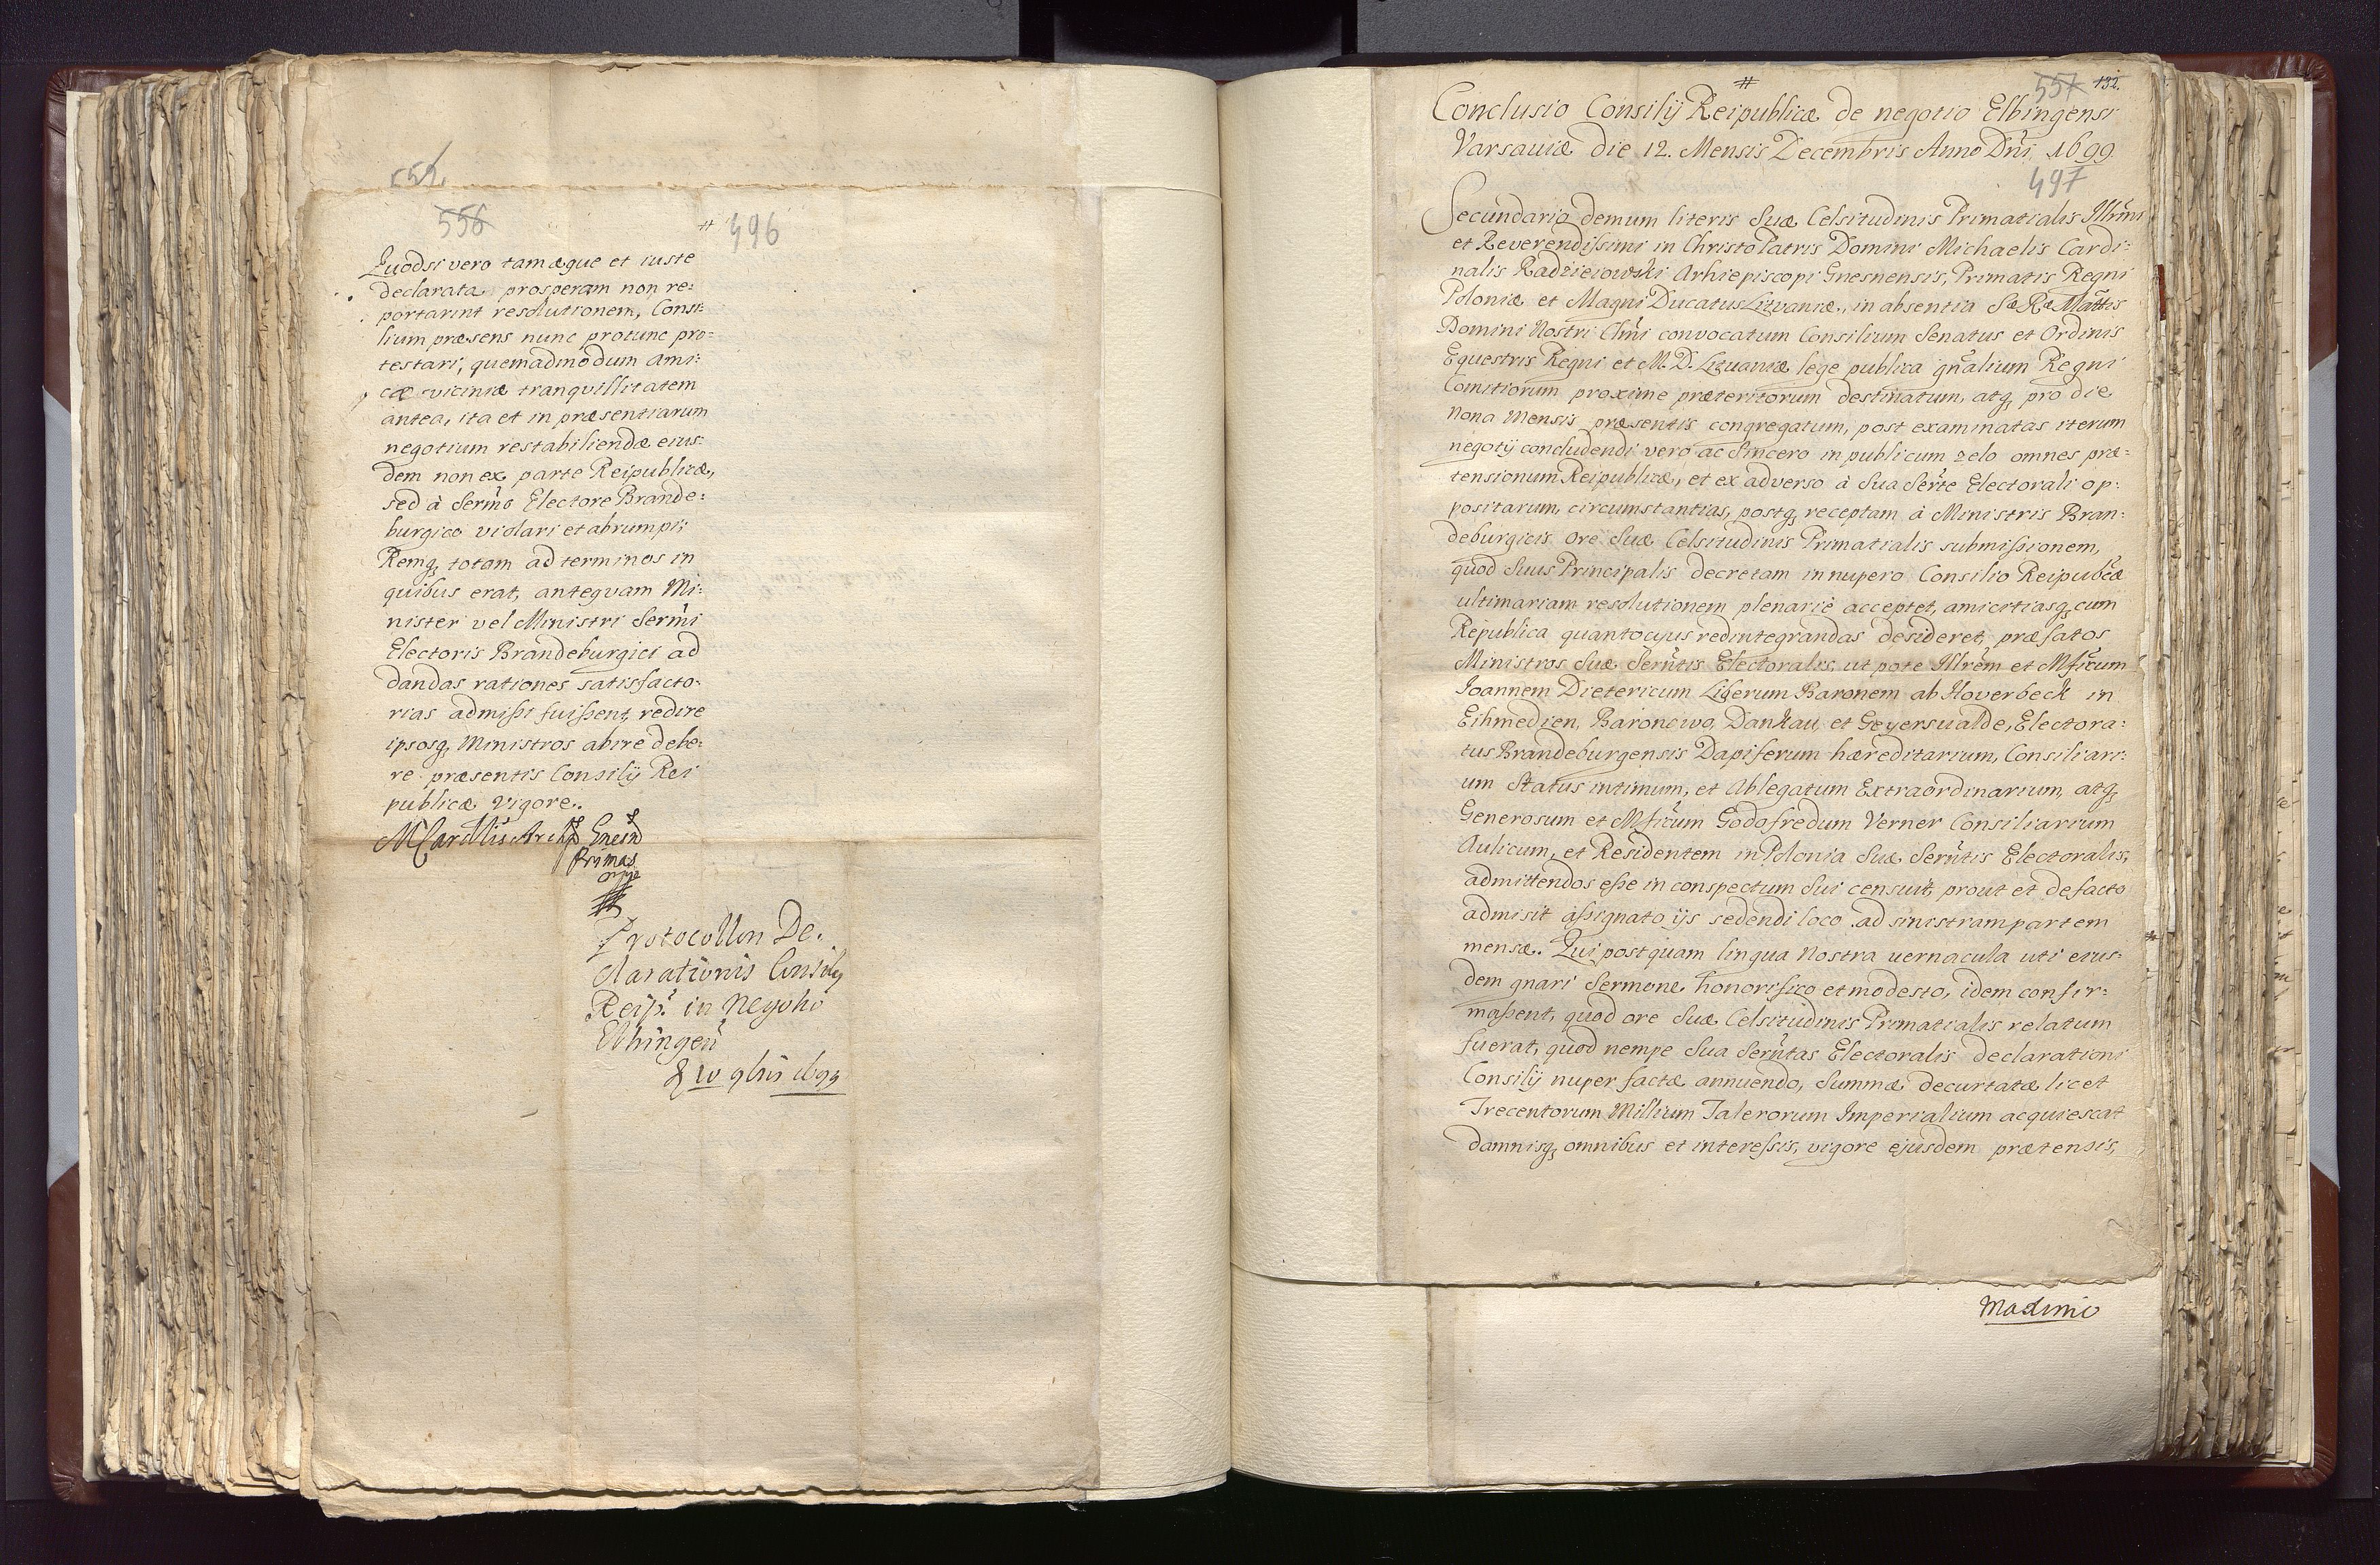 556
# 496
Quodsi vero tam æque et iuste
declarata prosperam non re:
portarint resolutionem, Consi:
lium præsens nunc protunc pro:
testari, quemadmodum ami:
cæ viciniæ tranquillitatem
antea, ita et in præsentiarum
negotium restabiliendæ eius:
dem non ex parte Reipublicæ,
sed à Sermo Electore Brande:
burgico violari et abrumpi;
Remq, totam ad terminos in
quibus erat, antequam Mi:
nister vel Ministri Sermi
Electoris Brandeburgici ad
dandas rationes satisfacto:
rias admissi fuissent, redire
ipsosq, Ministros abire debe:
re præsentis Consilij Rei
publicæ vigore.
Primas
Protocollon De:
clarationis Consilij
Reip. in Negotio
Elbingen
# 557 132.
Conclusio Consilij Reipublicæ de negotio Elbingensi
Varsaviæ die 12. Mensis Decembris Anno Dni 1699
497
Secundario demum literis Suæ Celsitudinis Primatialis Illrmi
et Reverendissimi in Christo Patris Domini Michaelis Cardi:
nalis Radzieiowski Arhiepiscopi Gnesnensis, Primatis Regni
Poloniæ et Magni Ducatus Lituaniæ, in absentia Sæ Ræ Mattis
Domini Nostri Clmi convocatum Consilium Senatus et Ordinis
Equestris Regni et M. D. Lituaniæ lege publica gnalium Regni
Comitiorum proxime præteritorum destinatum, atq, pro die
nona Mensis præsentis congregatum, post examinatas iterum
negotij concludendi vero ac Sincero in publicum zelo omnes præ:
tensionum Reipublicæ, et ex adverso à Sua Serte Electorali op:
positarum, circumstantias, postq, receptam à Ministris Bran:
deburgicis ore Suæ Celsitudinis Primatialis submissionem,
quod Suus Principalis decretam in nupero Consilio Reipubcæ
ultimariam resolutionem plenariè acceptet, amicitiasq, cum
Republica quantocyus redintegrandas desideret, præfatos
Ministros Suæ Serntis Electoralis, ut pote Illrem et Mficum
Joannem Dietericum Liberum Baronem ab Hoverbeck in
Eihmedien, Baronowo, Dankau, et Geyerswalde, Electora:
tus Brandeburgensis Dapiferum hæreditarium, Consiliari:
um Status intimum, et Ablegatum Extraordinarium, atq,
Generosum et Mficum Godofredum Verner Consiliarium
Aulicum, et Residentem in Polonia Suæ Serntis Electoralis,
admittendos esse in conspectum Sui censuit, prout et defacto
admisit assignato ijs sedendi loco ad sinistram partem
mensæ. Qui postquam lingua Nostra vernacula uti eius:
dem gnari Sermone honorifico et modesto, idem confir:
massent, quod ore Suæ Celsitudinis Primatialis relatum
fuerat, quod nempe Sua Serntas Electoralis declarationi
Consilij nuper factæ annuendo, Summæ decurtatæ licet
Trecentorum Millium Talerorum Imperialium acquiescat
damnisq, omnibus et interessis, vigore ejusdem prætensis,